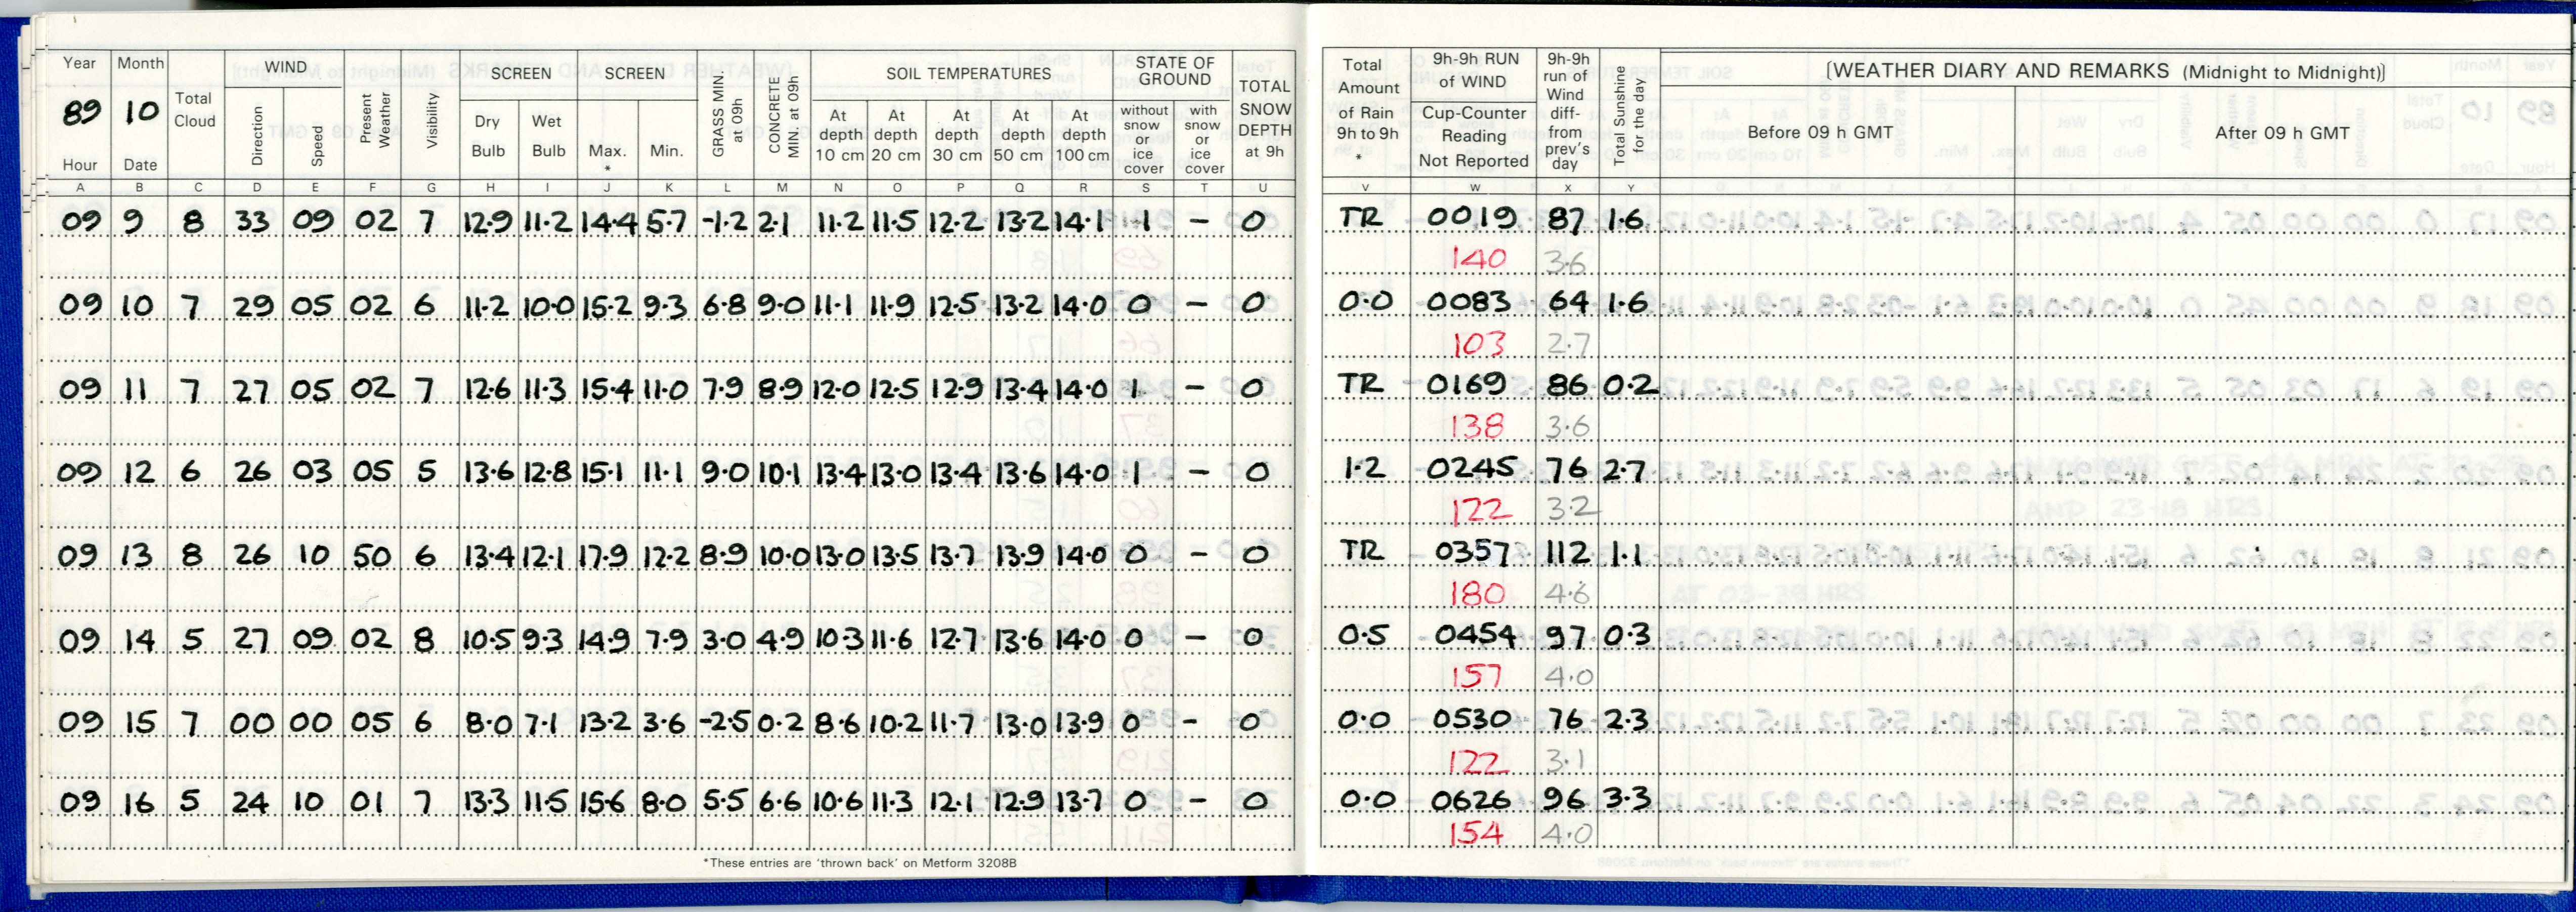 Year Month Total Cloud WIND Present Weather Visibility SCREEN SCREEN GRASS MIN. at 09h CONCRETE MIN. at 09h SOIL TEMPERATURES STATE OF GROUND TOTAL SNOW DEPTH at 9h
89 10 Direction Speed Dry Bulb Wet Bulb Max. * Min. At depth 10 cm At depth 20 cm At depth 30 cm At depth 50 cm At depth 100 cm without snow or ice cover with snow or ice cover
Hour Date
A B C D E F G H I J K L M N O P Q R S T U
09 9 8 33 09 02 7 12.9 11.2 14.4 5.7 -1.2 2.1 11.2 11.5 12.2 13.2 14.1 1 - 0
09 10 7 29 05 02 6 11.2 10.0 15.2 9.3 6.8 9.0 11.1 11.9 12.5 13.2 14.0 0 - 0
09 11 7 27 05 02 7 12.6 11.3 15.4 11.0 7.9 8.9 12.0 12.5 12.9 13.4 14.0 1 - 0
09 12 6 26 03 05 5 13.6 12.8 15.1 11.1 9.0 10.1 13.4 13.0 13.4 13.6 14.0 1 - 0
09 13 8 26 10 50 6 13.4 12.1 17.9 12.2 8.9 10.0 13.0 13.5 13.7 13.9 14.0 0 - 0
09 14 5 27 09 02 8 10.5 9.3 14.9 7.9 3.0 4.9 10.3 11.6 12.7 13.6 14.0 0 - 0
09 15 7 00 00 05 6 8.0 7.1 13.2 3.6 -2.5 0.2 8.6 10.2 11.7 13.0 13.9 0 - 0
09 16 5 24 10 01 7 13.3 11.5 15.6 8.0 5.5 6.6 10.6 11.3 12.1 12.9 13.7 0 - 0
*These entries are 'thrown back' on Metform 3208B
Total Amount of Rain 9h to 9h * 9h-9h RUN of WIND 9h-9h run of Wind diff- from prev's day Total Sunshine for the day [WEATHER DIARY AND REMARKS (Midnight to Midnight)]
Cup-Counter Reading Not Reported Before 09 h GMT After 09 h GMT
V W X Y
TR 0019 87 1.6
140 3.6
0.0 0083 64 1.6
103 2.7
TR 0169 86 0.2
138 3.6
1.2 0245 76 2.7
122 3.2
TR 0357 112 1.1
180 4.6
0.5 0454 97 0.3
157 4.0
0.0 0530 76 2.3
122 3.1
0.0 0626 96 3.3
154 4.0